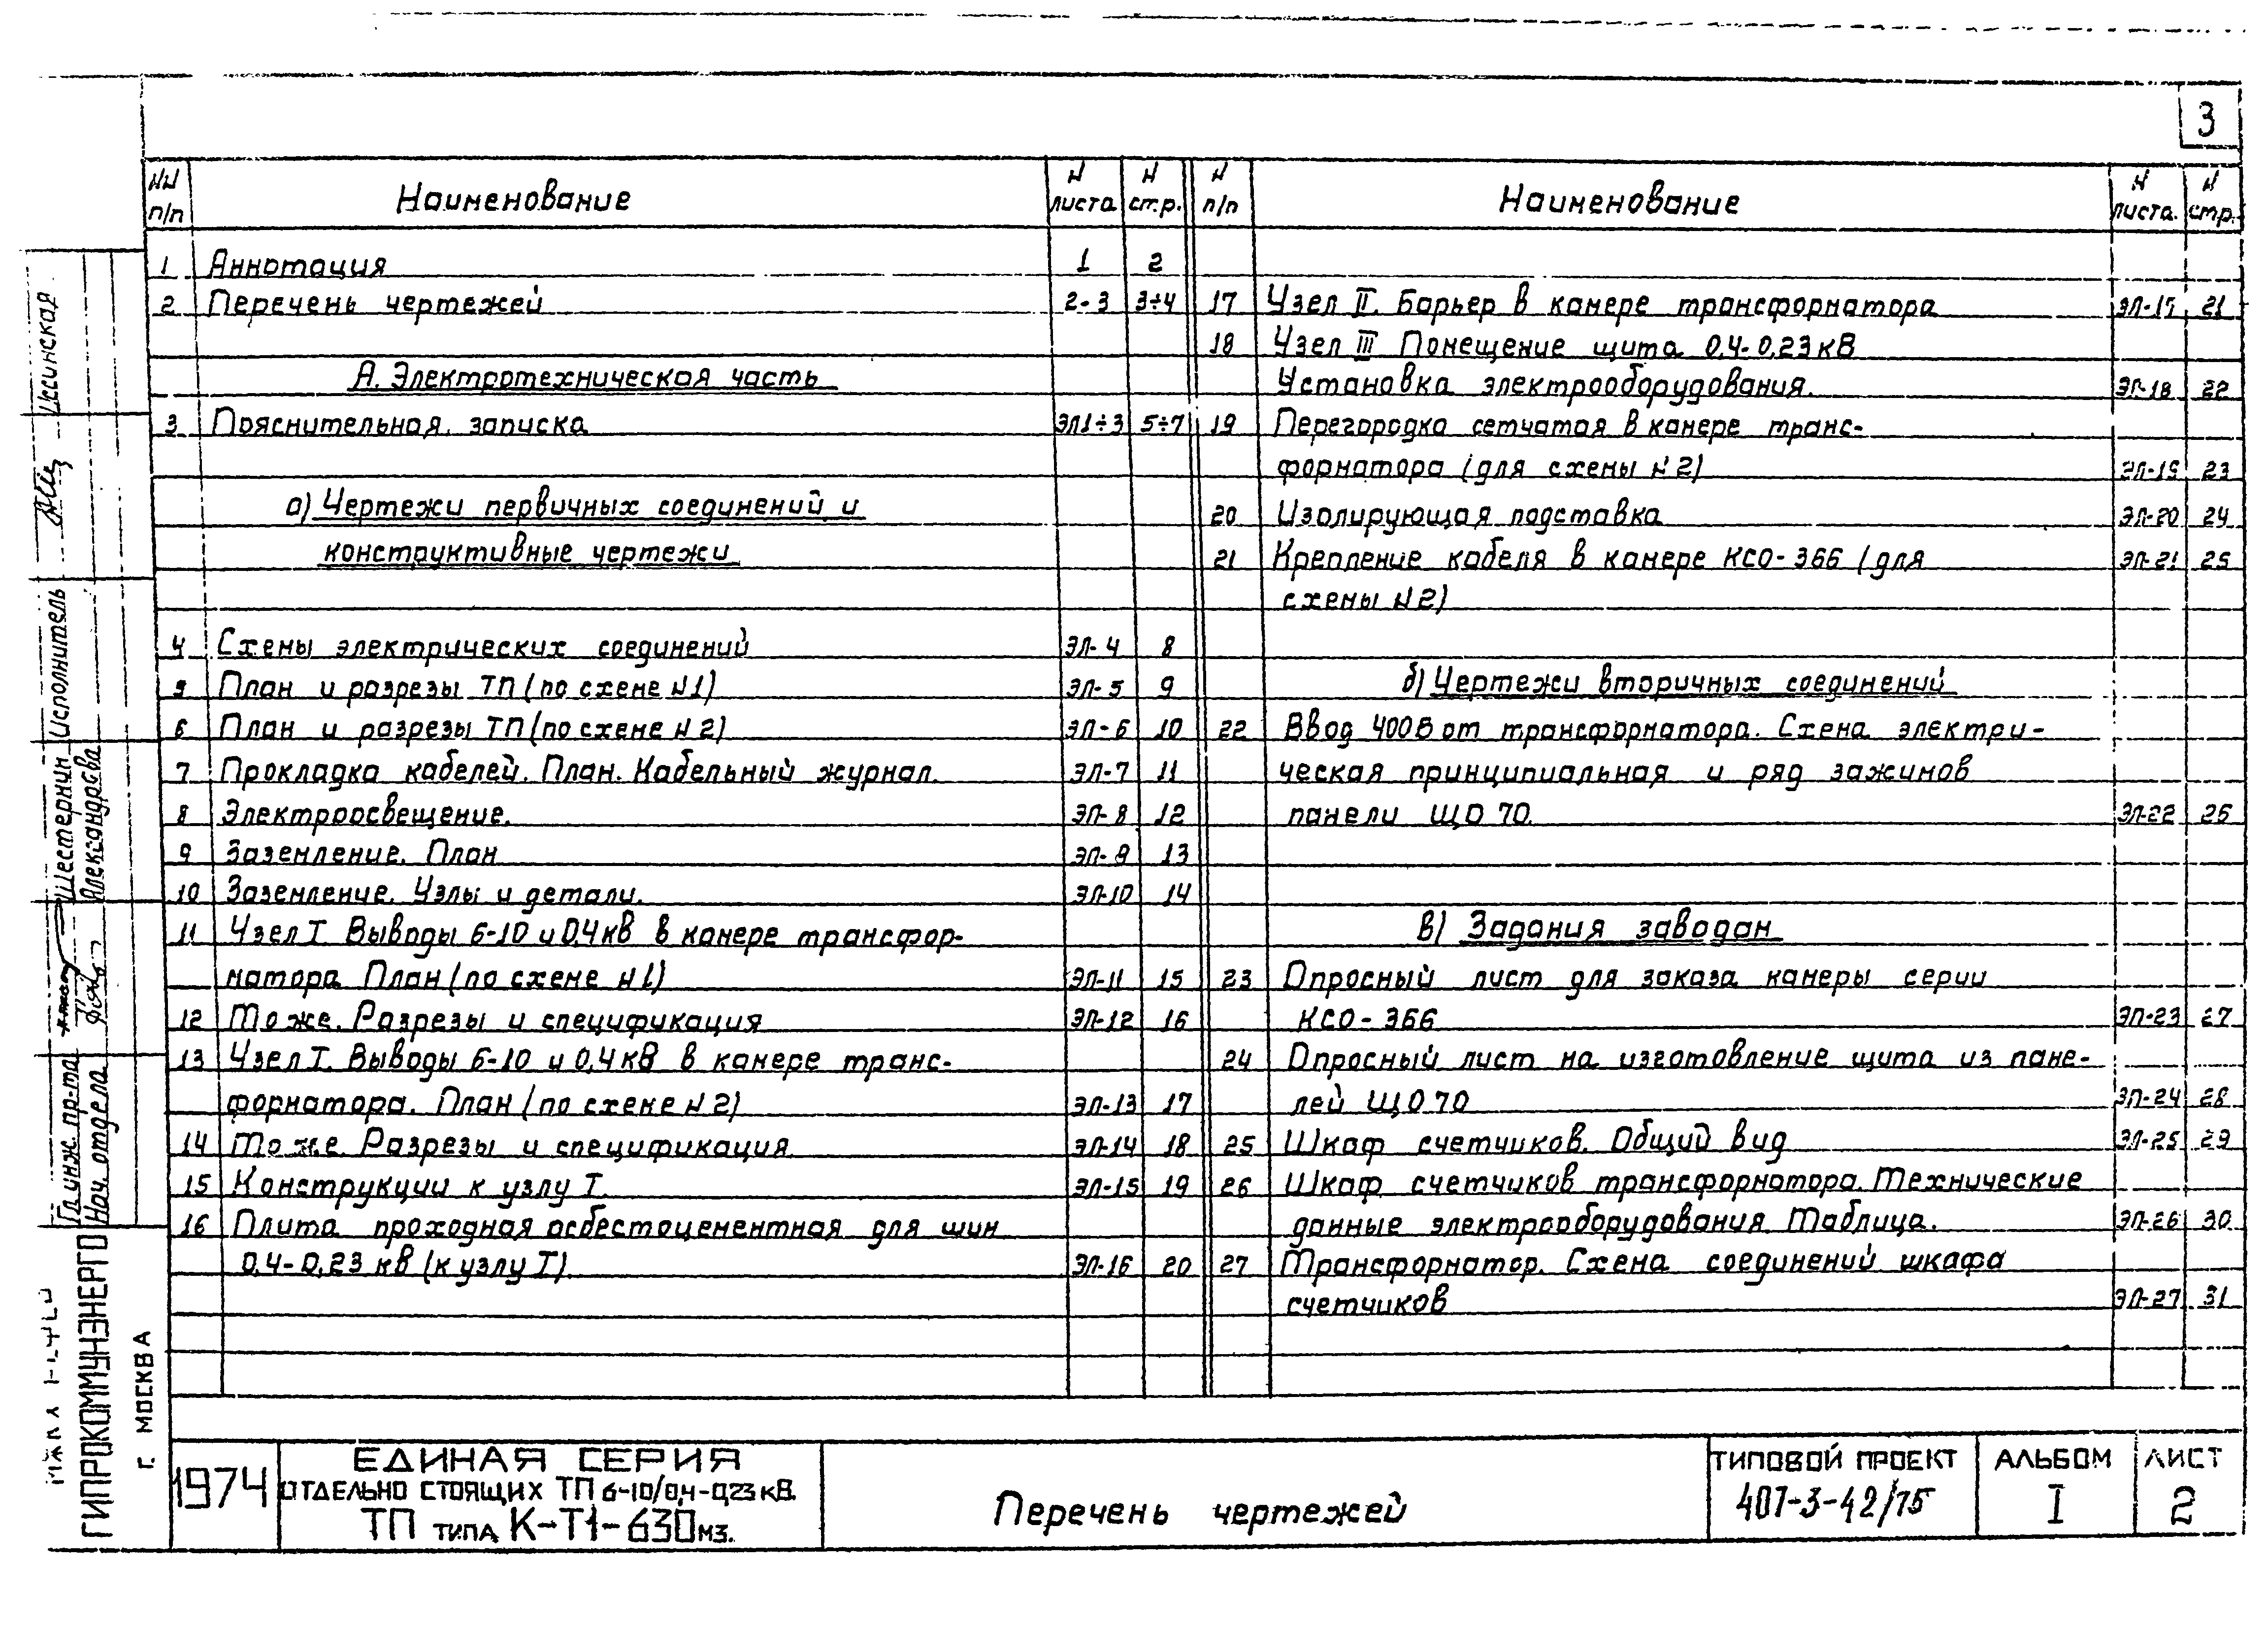 3
NN п/п Наименование N листа N стр.
1 Аннотация 1 2
2 Перечень чертежей 2-3 3÷4
А. Электротехническая часть
3 Пояснительная записка ЭЛ1÷3 5÷7
а) Чертежи первичных соединений и
конструктивные чертежи
4 Схемы электрических соединений ЭЛ-4 8
5 План и разрезы ТП (по схеме N1) ЭЛ-5 9
6 План и разрезы ТП (по схеме N2) ЭЛ-6 10
7 Прокладка кабелей. План. Кабельный журнал. ЭЛ-7 11
8 Электроосвещение. ЭЛ-8 12
9 Заземление. План ЭЛ-9 13
10 Заземление. Узлы и детали. ЭЛ-10 14
11 Узел I. Выводы 6-10 и 0,4кВ в камере трансфор-
матора. План (по схеме N1) ЭЛ-11 15
12 То же. Разрезы и спецификация ЭЛ-12 16
13 Узел I. Выводы 6-10 и 0,4кВ в камере транс-
форматора. План (по схеме N2) ЭЛ-13 17
14 То же. Разрезы и спецификация ЭЛ-14 18
15 Конструкции к узлу I. ЭЛ-15 19
16 Плита проходная асбестоцементная для шин
0,4-0,23 кв (к узлу I). ЭЛ-16 20
N п/п Наименование N листа. N стр.
17 Узел II. Барьер в камере трансформатора ЭЛ-17 21
18 Узел III Помещение щита 0,4-0,23кВ
Установка электрооборудования. ЭЛ-18 22
19 Перегородка сетчатая в камере транс-
форматора (для схемы N2) ЭЛ-19 23
20 Изолирующая подставка ЭЛ-20 24
21 Крепление кабеля в камере КСО-366 (для ЭЛ-21 25
схемы N2)
б) Чертежи вторичных соединений
22 Ввод 400В от трансформатора. Схема электри-
ческая принципиальная и ряд зажимов
панели ЩО 70. ЭЛ-22 26
в) Задания заводам
23 Опросный лист для заказа камеры серии
КСО-366 ЭЛ-23 27
24 Опросный лист на изготовление щита из пане-
лей ЩО70 ЭЛ-24 28
25 Шкаф счетчиков. Общий вид ЭЛ-25 29
26 Шкаф счетчиков трансформатора. Технические
данные электрооборудования. Таблица. ЭЛ-26 30
27 Трансформатор. Схема соединений шкафа
счетчиков ЭЛ-27 31
Гл. инж. пр-та Шестернин Исполнитель
Нач. отдела Александрова
ГИПРОКОММУНЭНЕРГО
г. МОСКВА
1974
ЕДИНАЯ СЕРИЯ
ОТДЕЛЬНО СТОЯЩИХ ТП 6-10/0,4-0,23 кВ.
ТП типа К-Т1-630 м3.
Перечень чертежей
ТИПОВОЙ ПРОЕКТ
407-3-42/75
АЛЬБОМ
I
ЛИСТ
2